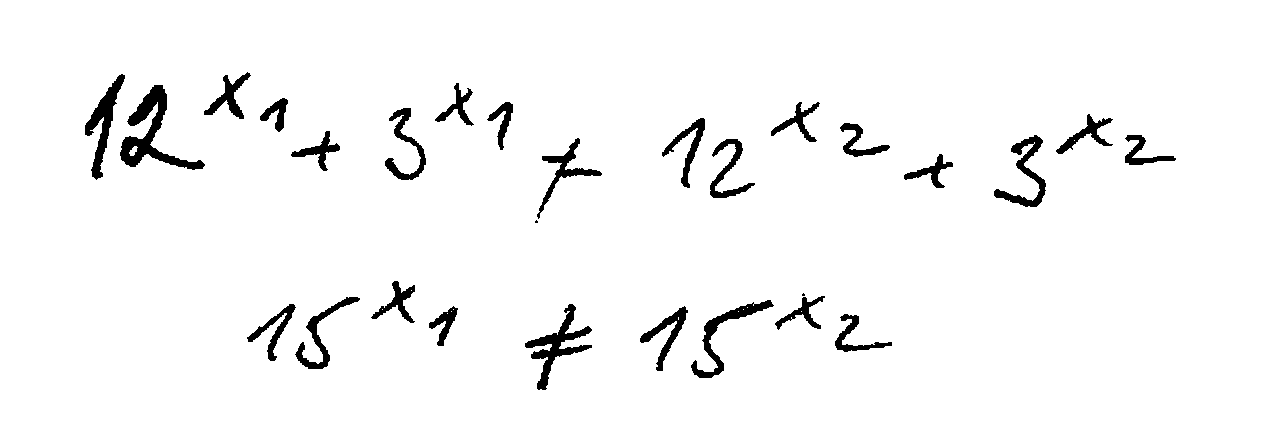 12^{x_1} + 3^{x_1} ≠ 12^{x_2} + 3^{x_2}
15^{x_1} ≠ 15^{x_2}